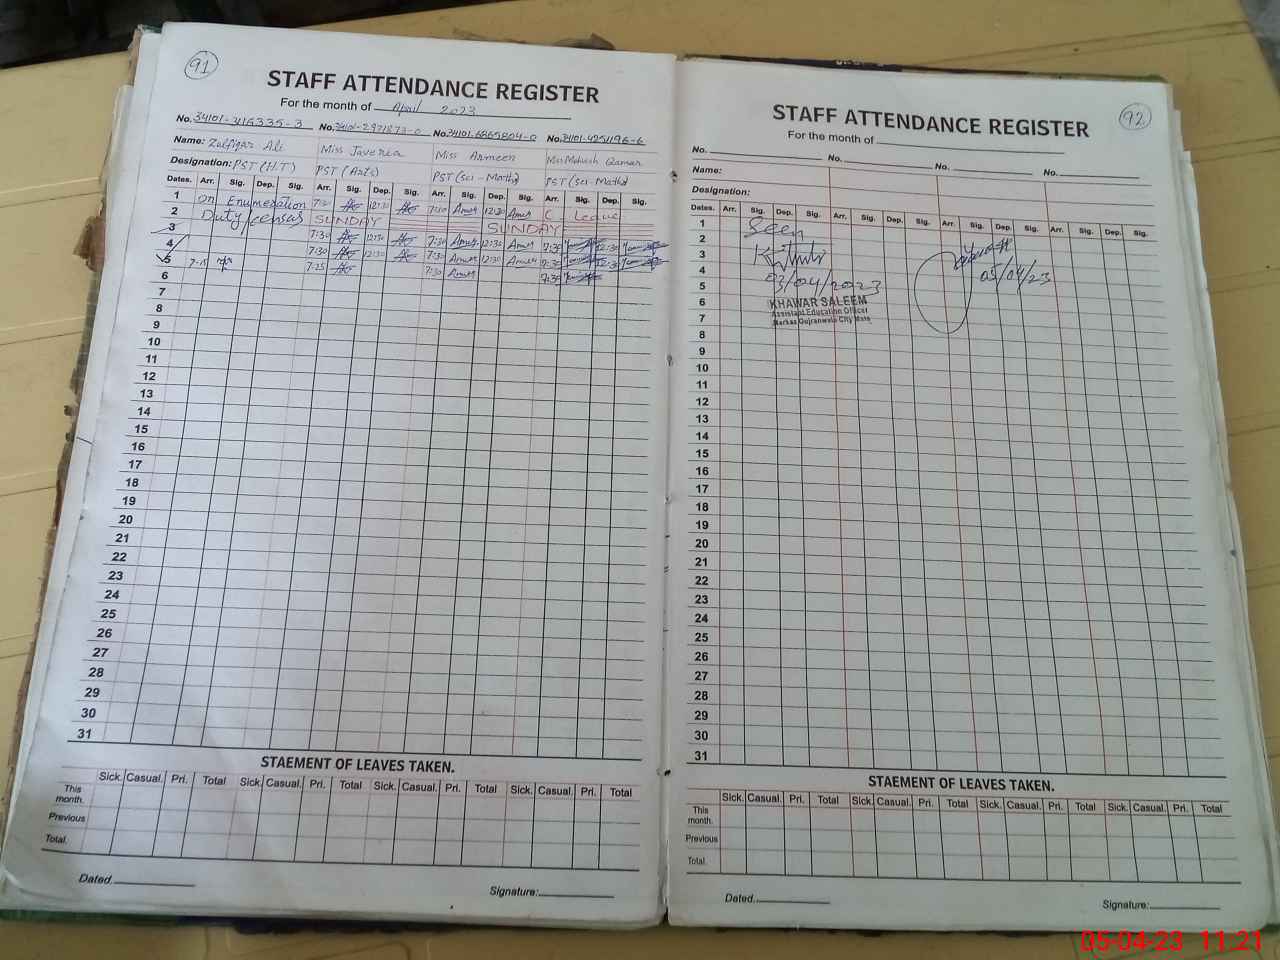 91
STAFF ATTENDANCE REGISTER
For the month of April 2023
No. 34101-2971873-0 No. 34101-6865804-0 No. 34101-4251196-6
Name: Zulfiqar Ali Miss Javeria Miss Armeen Miss Mehwish Qamar
Designation: PST (H.T) PST (Arts) PST (Sci-Math) PST (Sci-Math)
Dates. Arr. Sig. Dep. Sig. Arr. Sig. Dep. Sig. Arr. Sig. Dep. Sig. Arr. Sig. Dep. Sig.
1 On Enumeration 7:30 12:30 7:30 12:30 C. Leave
2 Duty/census SUNDAY SUNDAY
3 7:30 12:30 7:30 12:30 7:30 12:30
4 7:30 12:30 7:30 12:30 7:30 12:30
5 7-15 7:25 7:30 7:30
6
7
8
9
10
11
12
13
14
15
16
17
18
19
20
21
22
23
24
25
26
27
28
29
30
31
STAEMENT OF LEAVES TAKEN.
Sick. Casual. Pri. Total Sick. Casual. Pri. Total Sick. Casual. Pri. Total Sick. Casual. Pri. Total
This month.
Previous
Total.
Dated.
Signature:
92
STAFF ATTENDANCE REGISTER
For the month of
No. No. No. No.
Name:
Designation:
Dates. Arr. Sig. Dep. Sig. Arr. Sig. Dep. Sig. Arr. Sig. Dep. Sig. Arr. Sig. Dep. Sig.
1 Seen
2
3
4 05/04/23
5 03/04/2023
6 KHAWAR SALEEM
Assistant Education Officer
7 Markaz Gujranwala City Male
8
9
10
11
12
13
14
15
16
17
18
19
20
21
22
23
24
25
26
27
28
29
30
31
STAEMENT OF LEAVES TAKEN.
Sick. Casual. Pri. Total Sick. Casual. Pri. Total Sick. Casual. Pri. Total Sick. Casual. Pri. Total
This month.
Previous
Total.
Dated.
Signature:
05-04-23 11:21